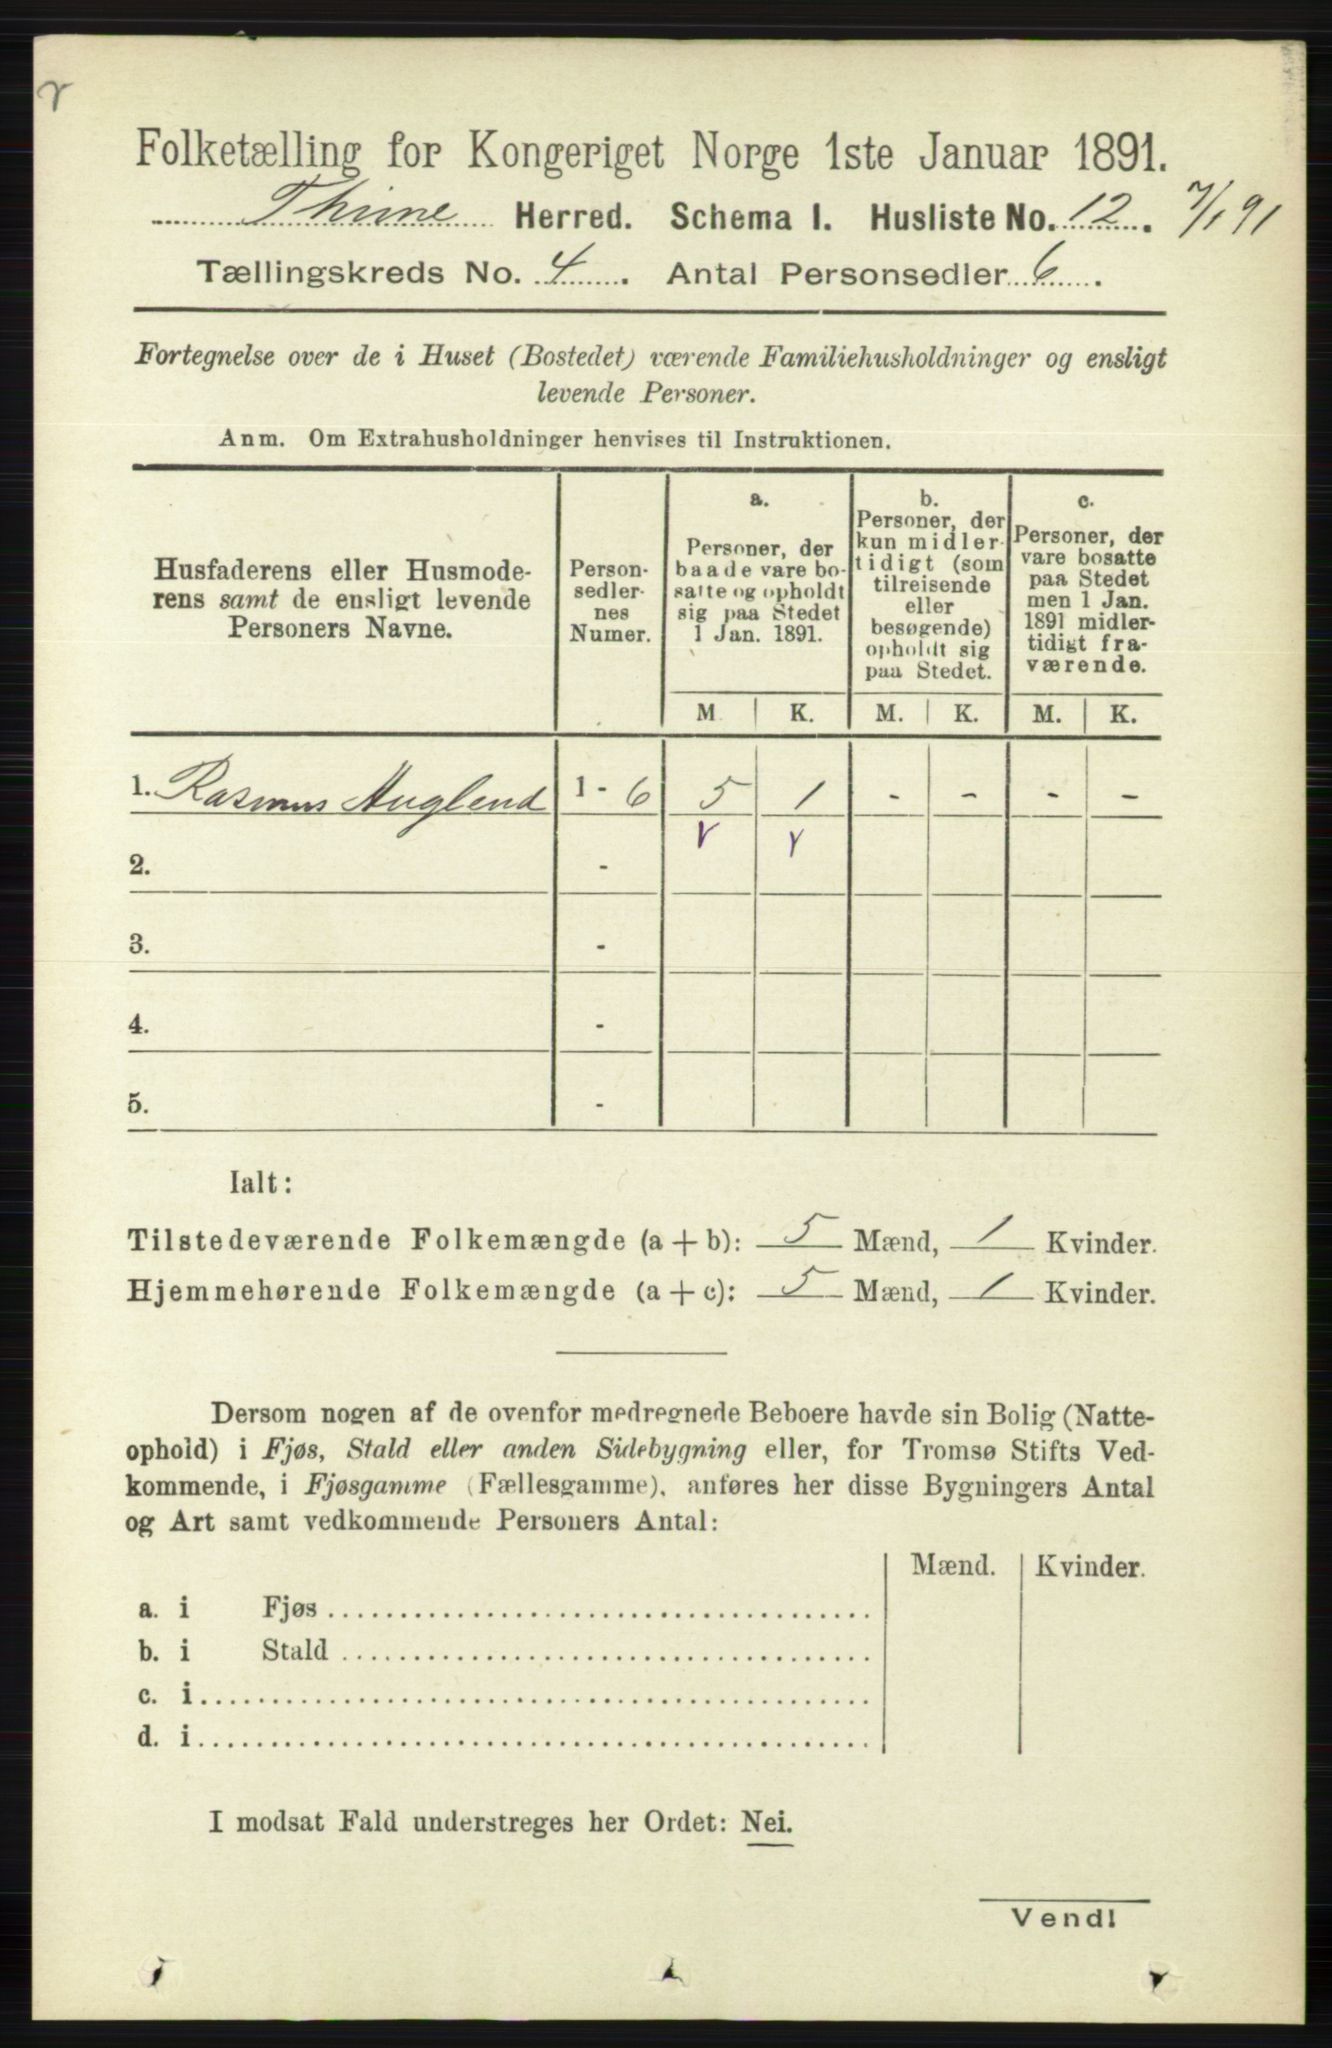 Folketælling for Kongeriget Norge 1ste Januar 1891.
Thime Herred. Schema I. Husliste No. 12. 7/1 91
Tællingskreds No. 4. Antal Personsedler 6.
Fortegnelse over de i Huset (Bostedet) værende Familiehusholdninger og ensligt
levende Personer.
Anm. Om Extrahusholdninger henvises til Instruktionen.
Husfaderens eller Husmode-
rens samt de ensligt levende
Personers Navne.
Person-
sedler-
nes
Numer.
a.
Personer, der
baade vare bo-
satte og opholdt
sig paa Stedet
1 Jan. 1891.
b.
Personer, der
kun midler-
tidigt (som
tilreisende
eller
besøgende)
opholdt sig
paa Stedet.
c.
Personer, der
vare bosatte
paa Stedet
men 1 Jan.
1891 midler-
tidigt fra-
værende.
M. K. M. K. M. K.
1. Rasmus Auglend 1 - 6 5 1 - - - -
2. -
3. -
4. -
5. -
Ialt:
Tilstedeværende Folkemængde (a + b): 5 Mænd, 1 Kvinder.
Hjemmehørende Folkemængde (a + c): 5 Mænd, 1 Kvinder.
Dersom nogen af de ovenfor medregnede Beboere havde sin Bolig (Natte-
ophold) i Fjøs, Stald eller anden Sidebygning eller, for Tromsø Stifts Ved-
kommende, i Fjøsgamme (Fællesgamme), anføres her disse Bygningers Antal
og Art samt vedkommende Personers Antal:
Mænd. Kvinder.
a. i Fjøs
b. i Stald
c. i
d. i
I modsat Fald understreges her Ordet: Nei.
Vendl